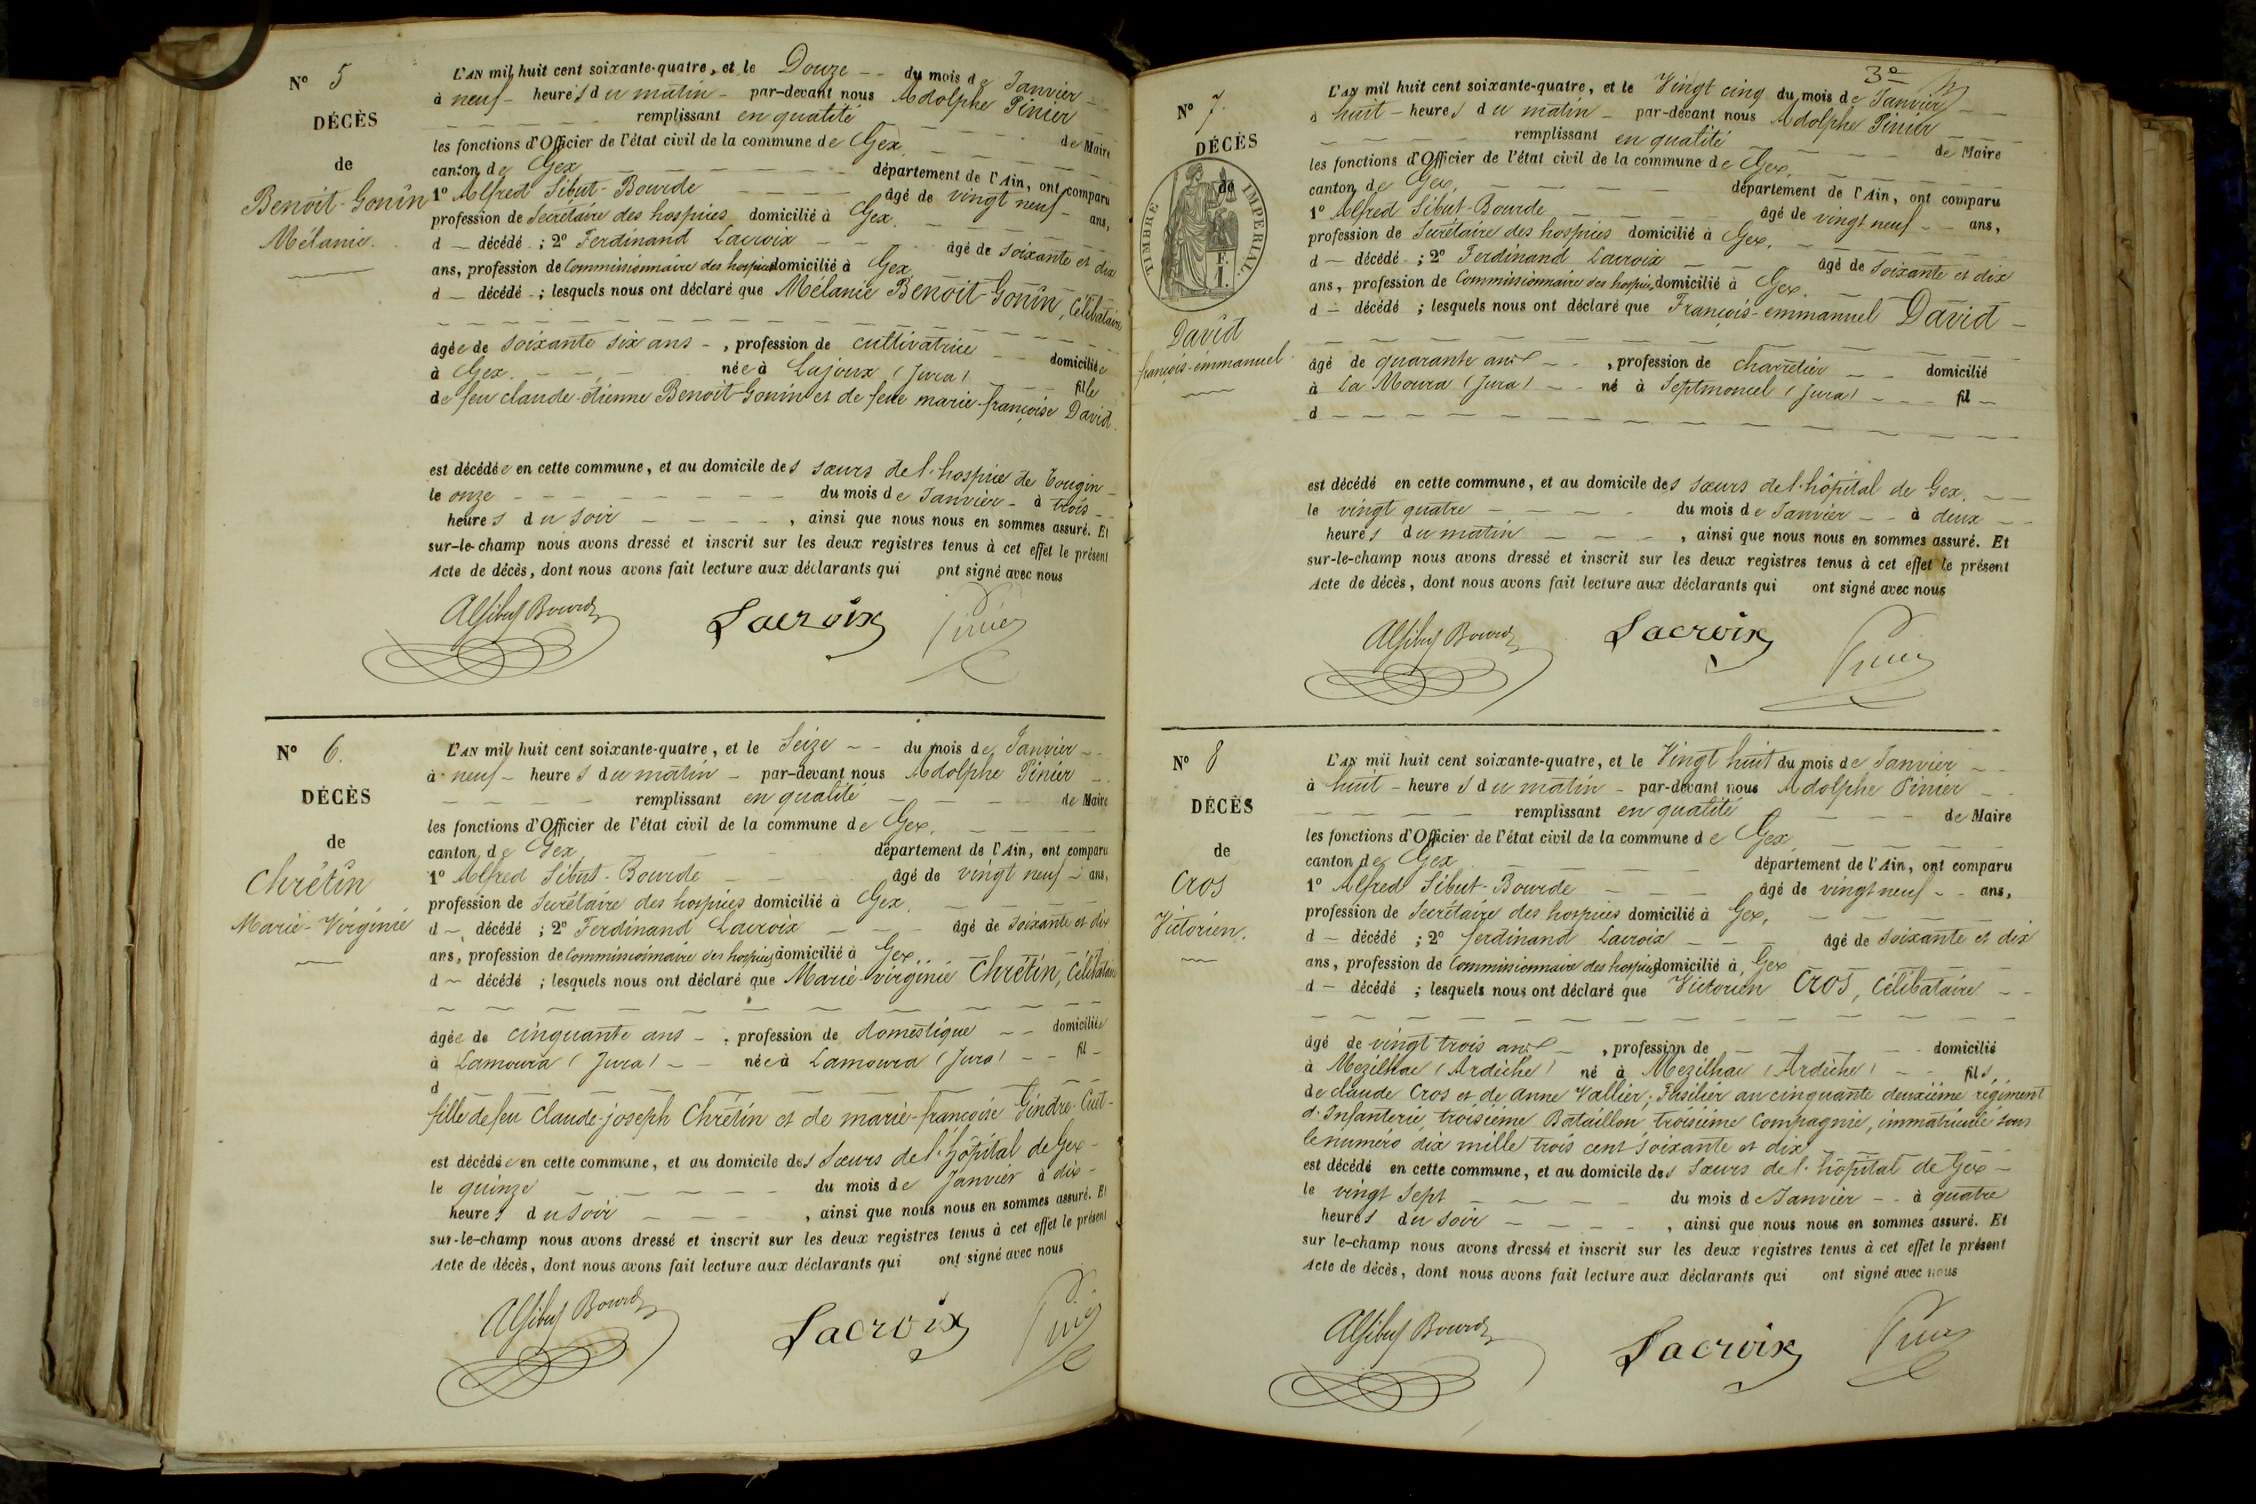 N° 5
DÉCÈS
de
Benoit-Gonin
Mélanie.
L'AN mil huit cent soixante-quatre, et le Douze -- du mois de Janvier --
à neuf - heures du matin - par-devant nous Adolphe Pinier
remplissant en qualité de Maire
les fonctions d'Officier de l'état civil de la commune de Gex.
canton de Gex département de l'Ain, ont comparu
1° Alfred Sibut-Bourde âgé de vingt neuf - ans,
profession de Secrétaire des hospices domicilié à Gex.
d — décédé ; 2° Ferdinand Lacroix âgé de Soixante et dix
ans, profession de Commissionnaire des hospices domicilié à Gex
d — décédé ; lesquels nous ont déclaré que Mélanie Benoit-Gonin, Célibataire
âgée de Soixante six ans -, profession de cultivatrice -- domiciliée
à Gex. née à Lajoux (Jura) fille
de feu claude-étienne Benoit-Gonin et de feue marie-françoise David.
est décédée en cette commune, et au domicile des sœurs de l'hospice de Tougin -
le onze du mois de Janvier - à trois --
heures du Soir , ainsi que nous nous en sommes assuré. Et
sur-le-champ nous avons dressé et inscrit sur les deux registres tenus à cet effet le présent
Acte de décès, dont nous avons fait lecture aux déclarants qui ont signé avec nous
Al Sibut Bourde Lacroix Pinier
N° 6.
DÉCÈS
de
Chrétin
Marie-Virginie
L'AN mil huit cent soixante-quatre, et le Seize -- du mois de Janvier --
à neuf - heures du matin - par-devant nous Adolphe Pinier --
remplissant en qualité de Maire
les fonctions d'Officier de l'état civil de la commune de Gex.
canton de Gex département de l'Ain, ont comparu
1° Alfred Sibut-Bourde âgé de vingt neuf - ans,
profession de Secrétaire des hospices domicilié à Gex.
d — décédé ; 2° Ferdinand Lacroix âgé de Soixante et dix
ans, profession de Commissionnaire des hospices domicilié à Gex.
d — décédé ; lesquels nous ont déclaré que Marie-virginie Chrétin, Célibataire
âgée de cinquante ans -, profession de domestique -- domiciliée
à Lamoura (Jura) -- née à Lamoura (Jura) -- fil -
d
fille de feu Claude-joseph Chrétin et de marie-françoise Gindre-Cuet-
est décédée en cette commune, et au domicile des Sœurs de l'hôpital de Gex -
le quinze du mois de Janvier à dix -
heures du Soir , ainsi que nous nous en sommes assuré. Et
sur-le-champ nous avons dressé et inscrit sur les deux registres tenus à cet effet le présent
Acte de décès, dont nous avons fait lecture aux déclarants qui ont signé avec nous
Al Sibut Bourde Lacroix Pinier
3e
N° 7.
DÉCÈS
de
TIMBRE IMPERIAL.
1 F.
David
françois-emmanuel.
L'AN mil huit cent soixante-quatre, et le Vingt cinq du mois de Janvier --
à huit - heures du matin - par-devant nous Adolphe Pinier
remplissant en qualité de Maire
les fonctions d'Officier de l'état civil de la commune de Gex.
canton de Gex, département de l'Ain, ont comparu
1° Alfred Sibut-Bourde âgé de vingt neuf -- ans,
profession de Secrétaire des hospices domicilié à Gex.
d — décédé ; 2° Ferdinand Lacroix âgé de Soixante et dix
ans, profession de Commissionnaire des hospices domicilié à Gex.
d — décédé ; lesquels nous ont déclaré que François-emmanuel David -
âgé de quarante ans --, profession de charretier -- domicilié
à La Moura (Jura) -- né à Septmoncel (Jura) --- fil -
d
est décédé en cette commune, et au domicile des sœurs de l'hôpital de Gex. --
le vingt quatre du mois de Janvier -- à deux --
heures du matin , ainsi que nous nous en sommes assuré. Et
sur-le-champ nous avons dressé et inscrit sur les deux registres tenus à cet effet le présent
Acte de décès, dont nous avons fait lecture aux déclarants qui ont signé avec nous
Al Sibut Bourde Lacroix Pinier
N° 8
DÉCÈS
de
Cros
Victorien.
L'AN mil huit cent soixante-quatre, et le Vingt huit du mois de Janvier --
à huit - heures du matin - par-devant nous Adolphe Pinier --
remplissant en qualité de Maire
les fonctions d'Officier de l'état civil de la commune de Gex
canton de Gex département de l'Ain, ont comparu
1° Alfred Sibut-Bourde âgé de vingt neuf -- ans,
profession de Secrétaire des hospices domicilié à Gex,
d — décédé ; 2° ferdinand Lacroix âgé de Soixante et dix
ans, profession de Commissionnaire des hospices domicilié à Gex
d — décédé ; lesquels nous ont déclaré que Victorien Cros, Célibataire --
âgé de vingt trois ans -, profession de -- domicilié
à Mezilhac (Ardèche) né à Mezilhac (Ardèche) -- fils,
de claude Cros et de Anne Vallier; Fusilier au cinquante deuxième régiment
d'Infanterie, troisième Bataillon, troisième Compagnie, immatriculé sous
le numéro dix mille trois cent soixante et dix
est décédé en cette commune, et au domicile des Sœurs de l'hôpital de Gex -
le vingt Sept du mois de Janvier -- à quatre
heures du Soir , ainsi que nous nous en sommes assuré. Et
sur le-champ nous avons dressé et inscrit sur les deux registres tenus à cet effet le présent
Acte de décès, dont nous avons fait lecture aux déclarants qui ont signé avec nous
Al Sibut Bourde Lacroix Pinier